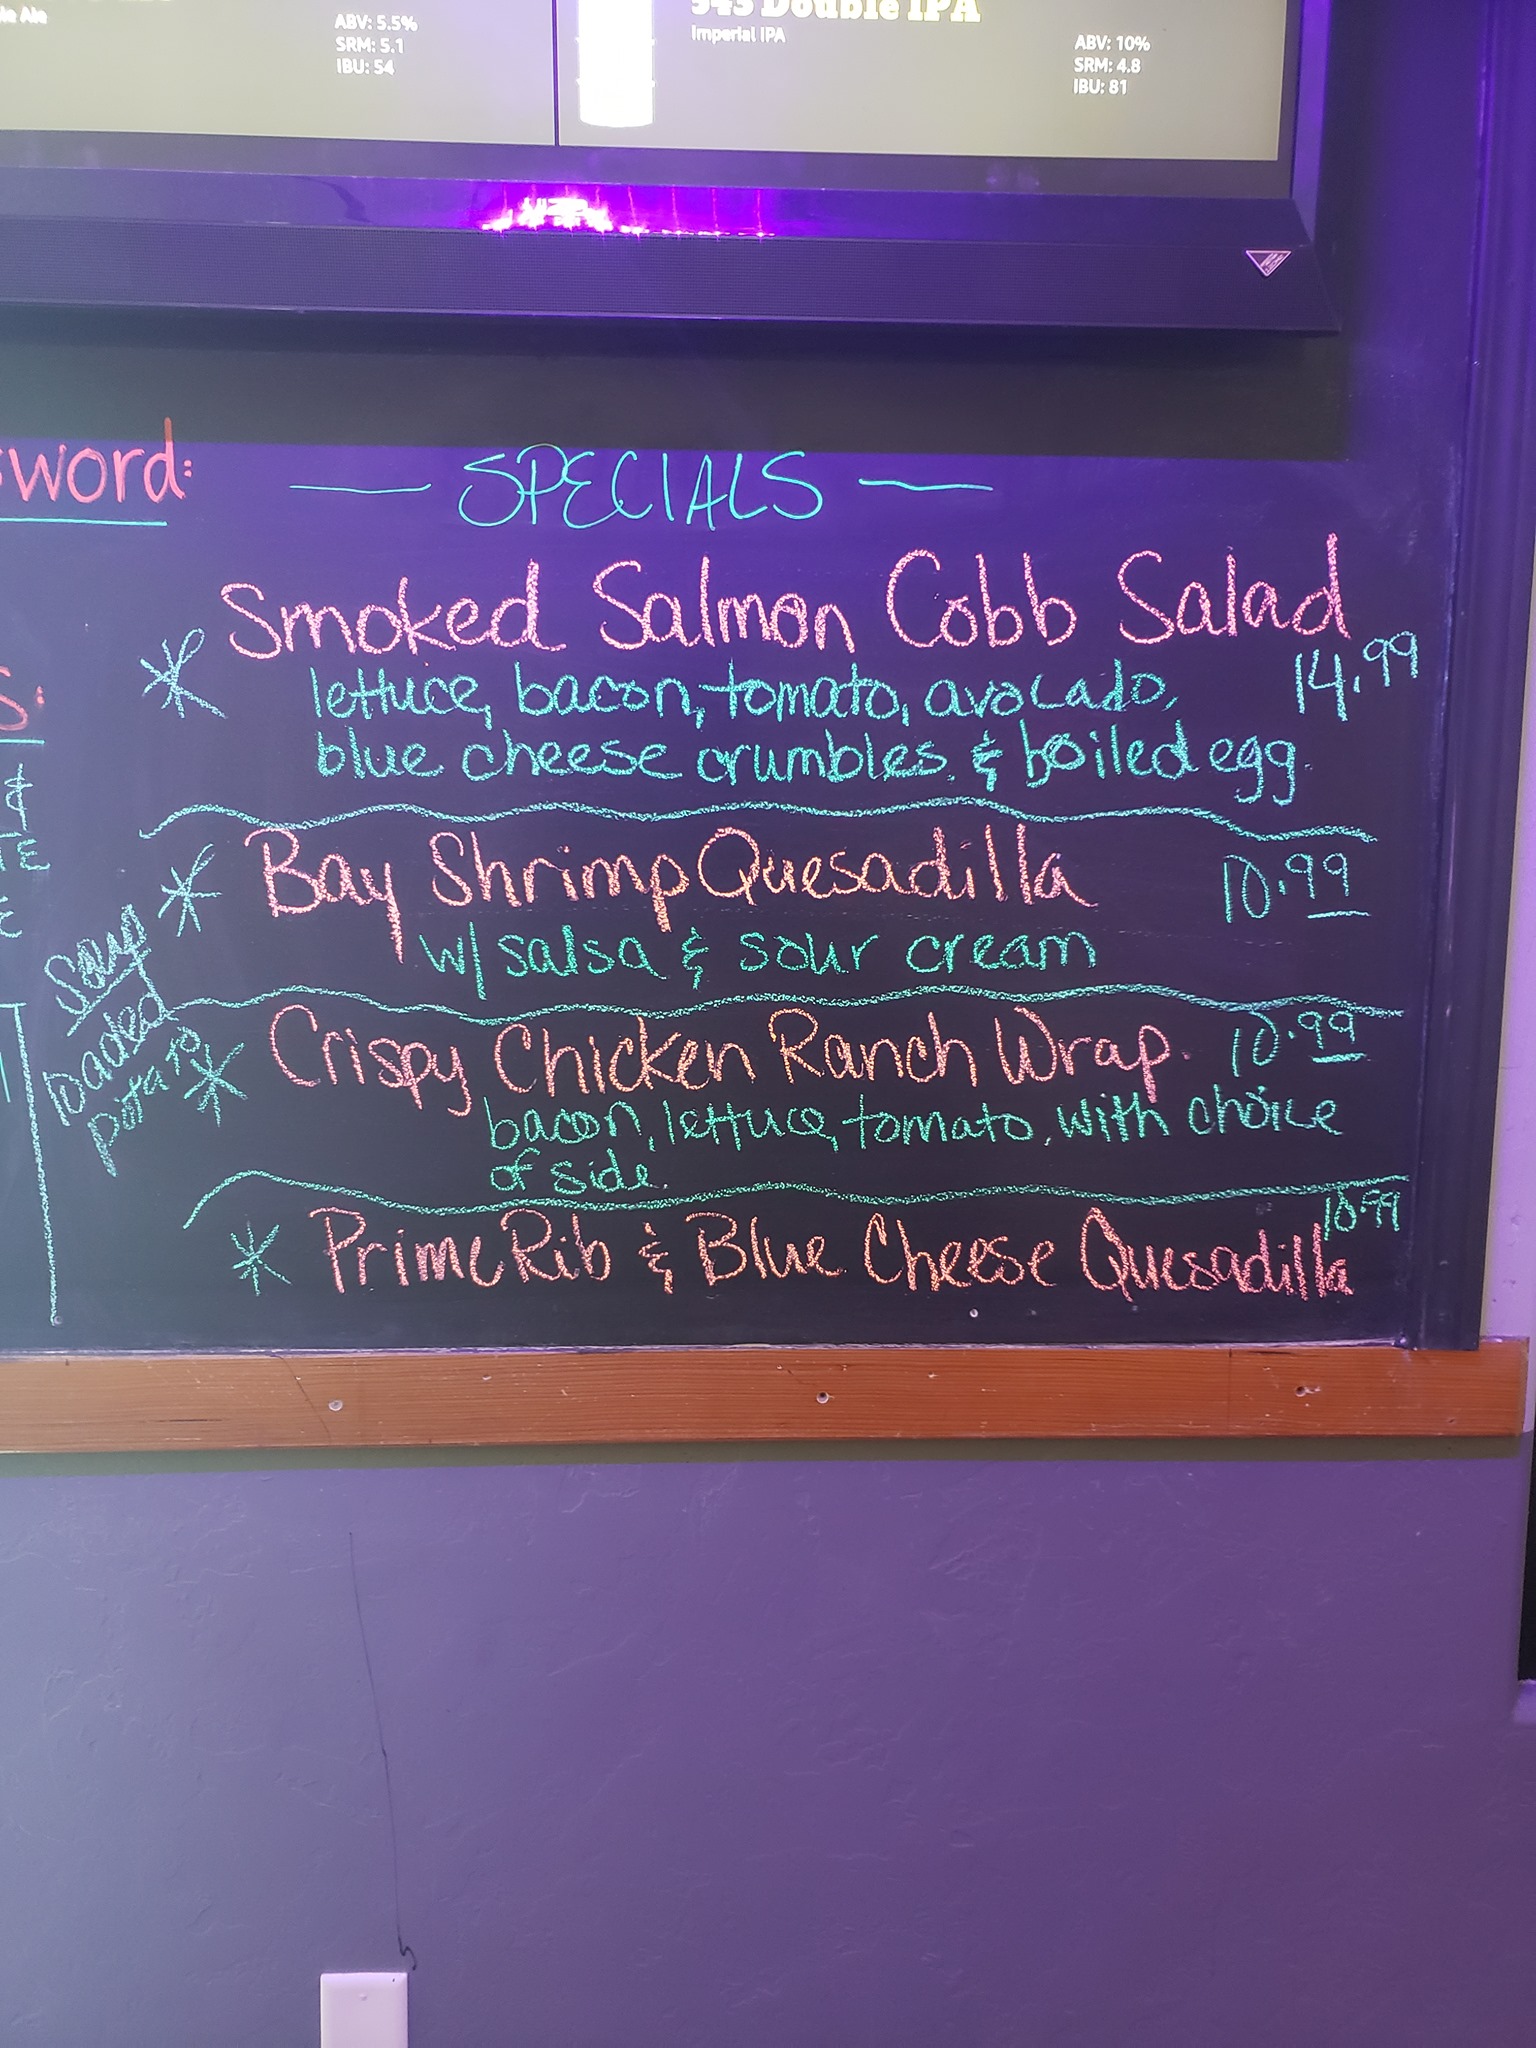 le Ale
ABV: 5.5%
SRM: 5.1
IBU: 54
543 Double IPA
Imperial IPA
ABV: 10%
SRM: 4.8
IBU: 81
sword:
SPECIALS
Smoked Salmon Cobb Salad
14.99
lettuce, bacon, tomato, avocado,
blue cheese crumbles & boiled egg.
Bay Shrimp Quesadilla
10.99
w/ salsa & sour cream
Soup
loaded
potato
Crispy Chicken Ranch Wrap.
10.99
bacon, lettuce, tomato, with choice
of side.
10.99
Prime Rib & Blue Cheese Quesadilla